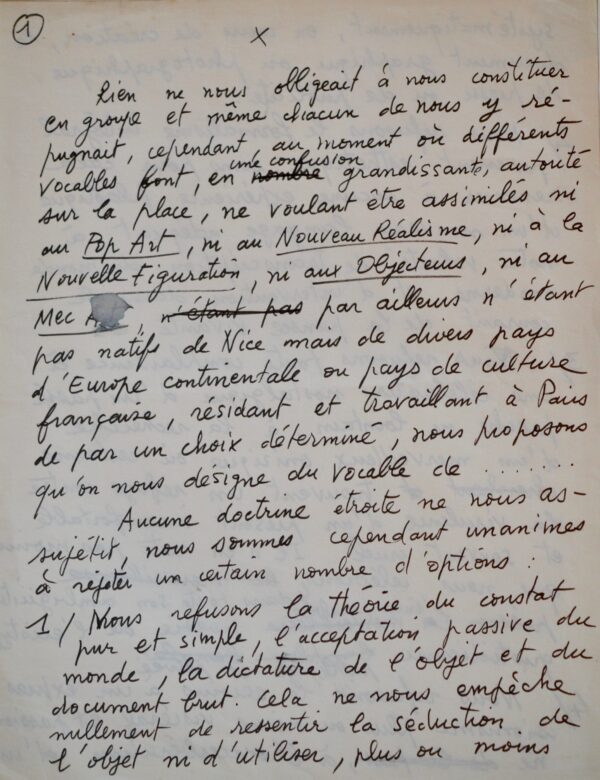 1
x
Rien ne nous obligeait à nous constituer
en groupe et même chacun de nous y ré-
pugnait, cependant, au moment où différents
vocables font, en nombre une confusion grandissante, autorité
sur la place, ne voulant être assimilés ni
au Pop Art, ni au Nouveau Réalisme, ni à la
Nouvelle Figuration, ni aux Objecteurs, ni au
Mec A , n'étant pas par ailleurs n'étant
pas natifs de Nice mais de divers pays
d'Europe continentale ou pays de culture
française, résidant et travaillant à Paris
de par un choix déterminé, nous proposons
qu'on nous désigne du vocable de ........
Aucune doctrine étroite ne nous as-
sujétit, nous sommes cependant unanimes
à rejeter un certain nombre d'options :
1/ Nous refusons la théorie du constat
pur et simple, l'acceptation passive du
monde, la dictature de l'objet et du
document brut. Cela ne nous empêche
nullement de ressentir la séduction de
l'objet ni d'utiliser, plus ou moins